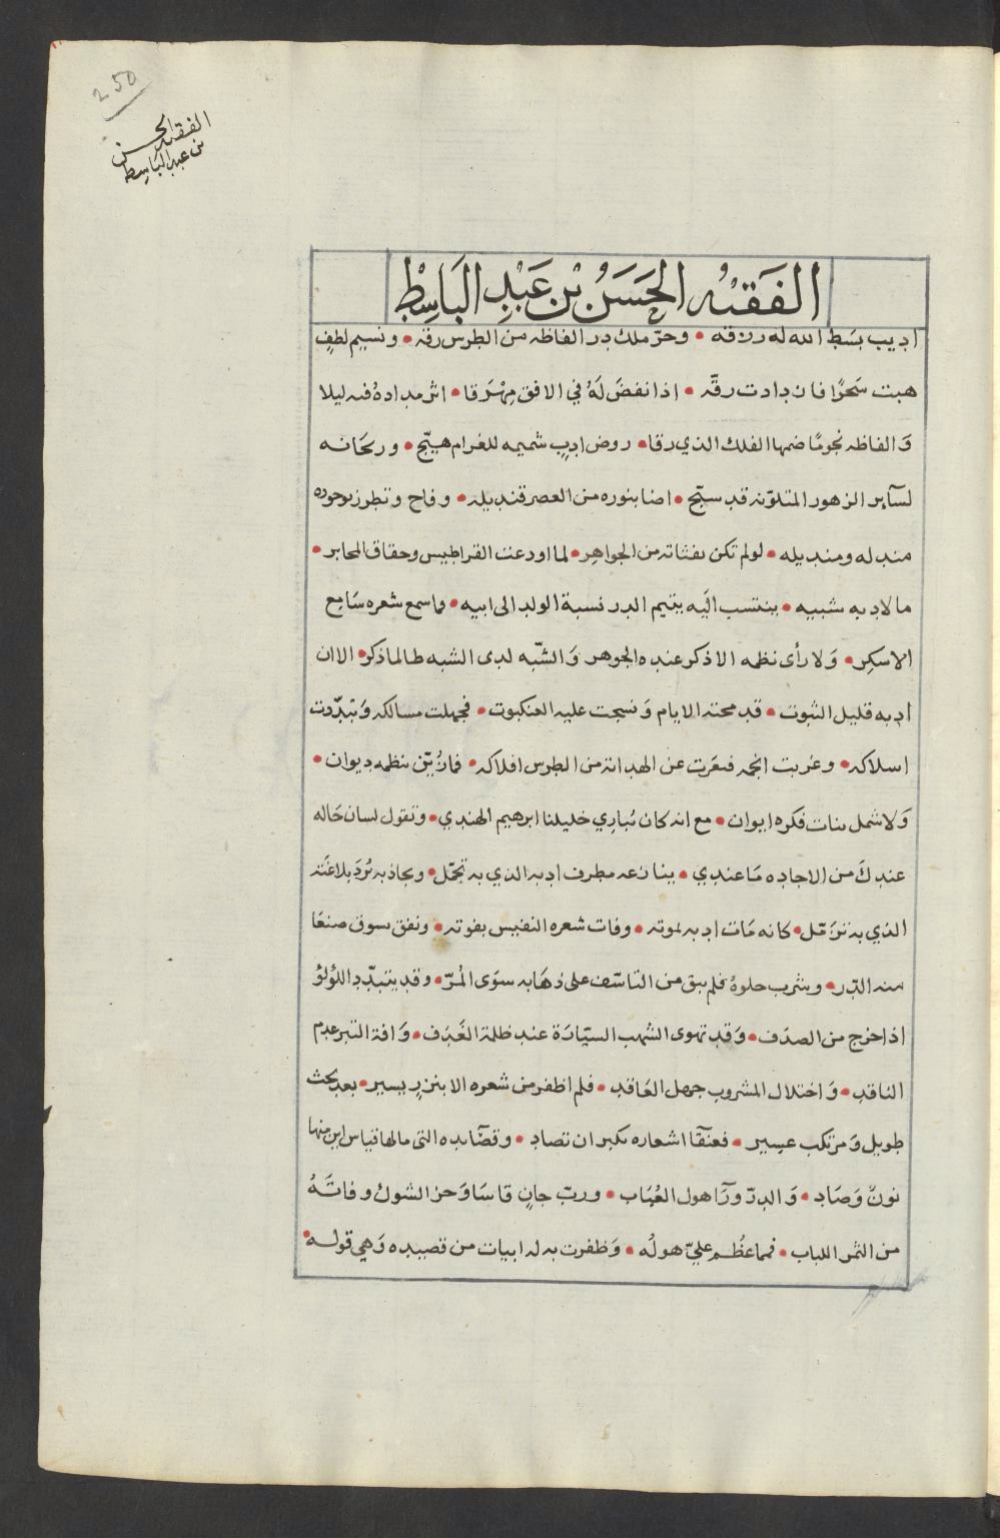 250
الفقيه الحسن
بن عبد الباسط
الفَقيْه الحَسَنُ بْن عَبْدِ البَاسِطْ
اديب بسَط الله له رزقه • وحرّ ملك در الفاظه من الطرس رقه • ونسيم لطفٍ
هبت سَحَرًا فازدادت رقّه • اذا نفضَ لَهُ في الافق مِهْرَقا • اثر مداده فيه ليلا
وَالفاظه نجومًا ضمها الفلك الذي رقا • روض ادبٍ شميمه للغرام هيّج • وريحَانه
لسآير الزهور المتلوّنه قد سيّج • اضا بنوره من العصر قنديله • وفاح وتطرز بوجوده
مندله ومنديله • لولم تكن نفثاته من الجواهِر • لما اودعت القراطيس وحقاق المحابر •
مالادبه شبيه • ينتسب اليَه يتيم الدر نسبة الولد الى ابيه • ماسمع شعره سَامِع
الاسكِر • وَلا رأى نظمه الا ذكر عنده الجوهر وَالشبّه لدى الشبه طالما ذكر • الا ان
ادبه قليل الثبوت • قد محته الايام وَنسجت عليه العنكبوت • فجهلت مسالكه وَتبدّدت
اسلاكه • وغربت انجمه فتعرت عن الهداية من الطرس افلاكه • فما زُيّن بنظمه ديوان •
وَلا شمل بنات فكره ايوان • مع انه كان يُباري خليلنا ابرهيم الهندي • وتقول لسان حَاله
عندكَ من الاجاده مَا عندي • ينازعه مطرف ادبه الذي به تجمّل • ويجاذبه بُردَ بلاغَته
الذي به تزمّل • كانه مَات ادبه بموته • وفات شعره النفيس بفوته • ونفق بسوق صنعَا
منه الدّر • وشرب حلوهُ فلم يبق من التاسّف على ذهَابه سوَى المُرّ • وقد يتبدّد اللؤلؤ
اذا خرج من الصدَف • وَقد تهوى الشهب السيّارَة عند ظلمة الغَدَف • وَافة التبر عدم
الناقد • وَاختلال المشروب جهل العَاقد • فلم اظفر من شعره الا بنزرٍ يسير • بعد بحث
طويل وَمرتكب عسير • فعنقا اشعاره يكبر ان تصاد • وقصَايده التى مالها قياس اين منها
نونٌ وَصَاد • وَالدرّ ورَآ هول العُبَاب • وربّ جانٍ قاسَا وَخز الشوك وفاتَهُ
من الثمر اللباب • فما عظُم عليّ هولُه • وَظفرت به له ابيات من قصيده وَهي قوله •